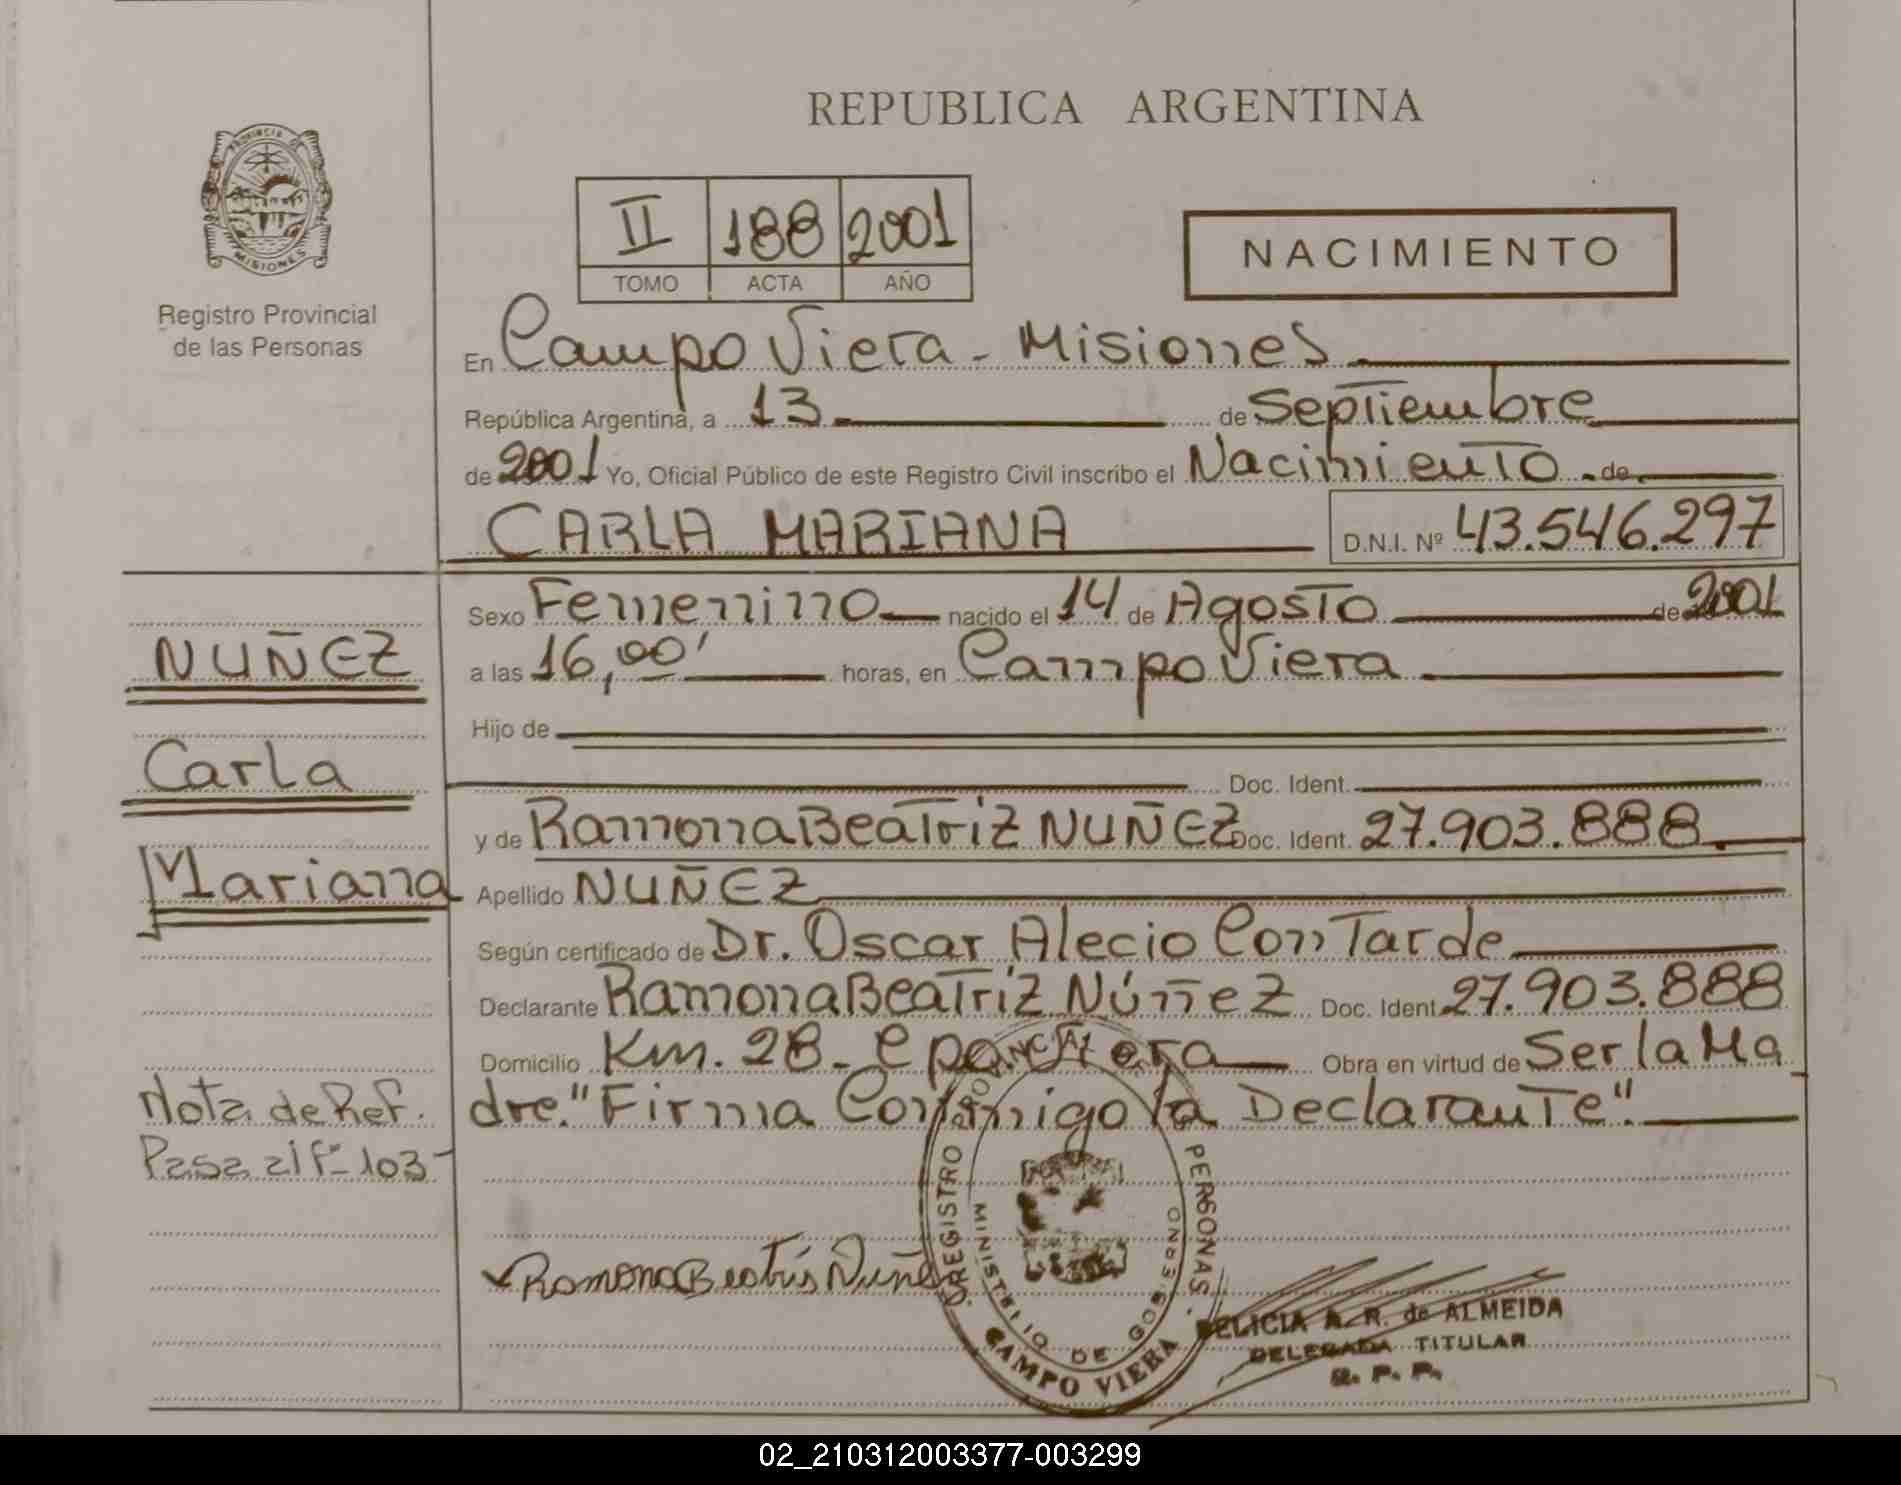 REPUBLICA ARGENTINA
PROVINCIA DE
MISIONES
Registro Provincial
de las Personas
II 188 2001
TOMO ACTA AÑO
NACIMIENTO
En Campo Viera - Misiones
República Argentina, a 13 de Septiembre
de 2001 Yo, Oficial Público de este Registro Civil inscribo el Nacimiento de
CARLA MARIANA D.N.I. Nº 43.546.297
NUÑEZ
Carla
Mariana
Nota de Ref.
Pasa al fº 103
Sexo Femenino nacido el 14 de Agosto de 2001
a las 16,00' horas, en Campo Viera
Hijo de
Doc. Ident.
y de Ramona Beatriz NUÑEZ Doc. Ident. 27.903.888.
Apellido NUÑEZ
Según certificado de Dr. Oscar Alecio Contarde
Declarante Ramona Beatriz Núñez Doc. Ident. 27.903.888
Domicilio Km. 28 - Cpo. Viera Obra en virtud de Ser la Ma
dre. "Firma Conmigo la Declarante".
Ramona Beatris Nuñe
REGISTRO PROVINCIAL DE LAS PERSONAS
MINISTERIO DE GOBIERNO
CAMPO VIERA
FELICIA A. R. de ALMEIDA
DELEGADA TITULAR
R. P. P.
02_210312003377-003299